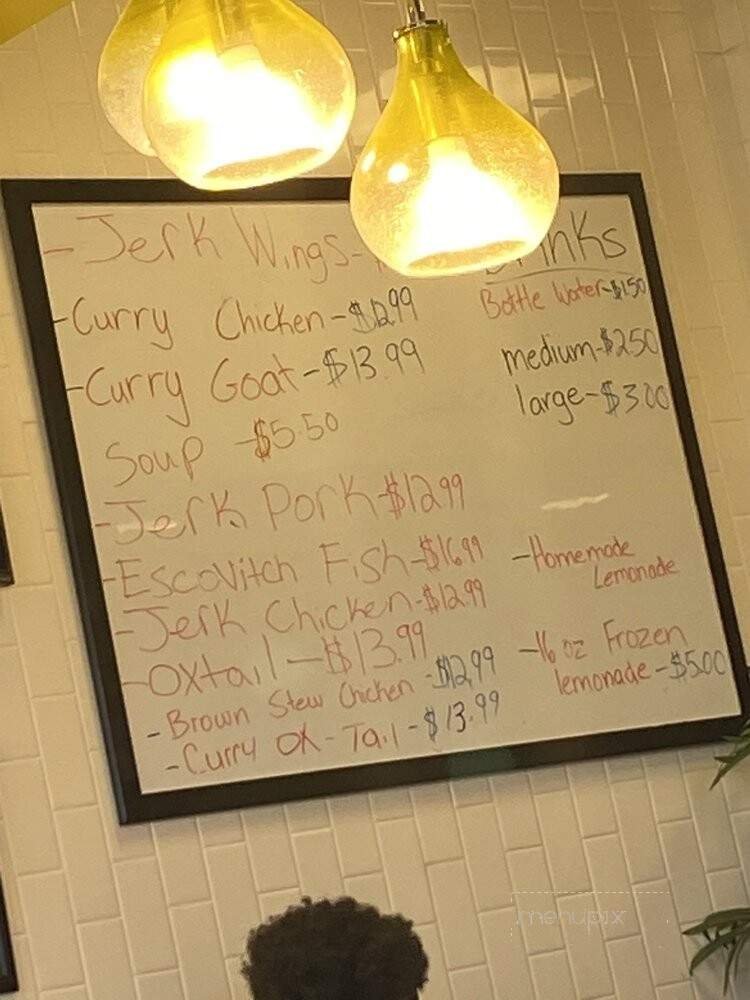 - Jerk Wings-
-Curry Chicken-$12.99
-Curry Goat-$13.99
Soup -$5.50
-Jerk Pork-$12.99
-Escovitch Fish-$16.99
-Jerk Chicken-$12.99
-Oxtail-$13.99
-Brown Stew Chicken -$12.99
-Curry OX-Tail-$13.99
Bottle Water-$1.50
medium-$2.50
large-$3.00
-Homemade
Lemonade
-16 oz Frozen
lemonade-$5.00
menupix